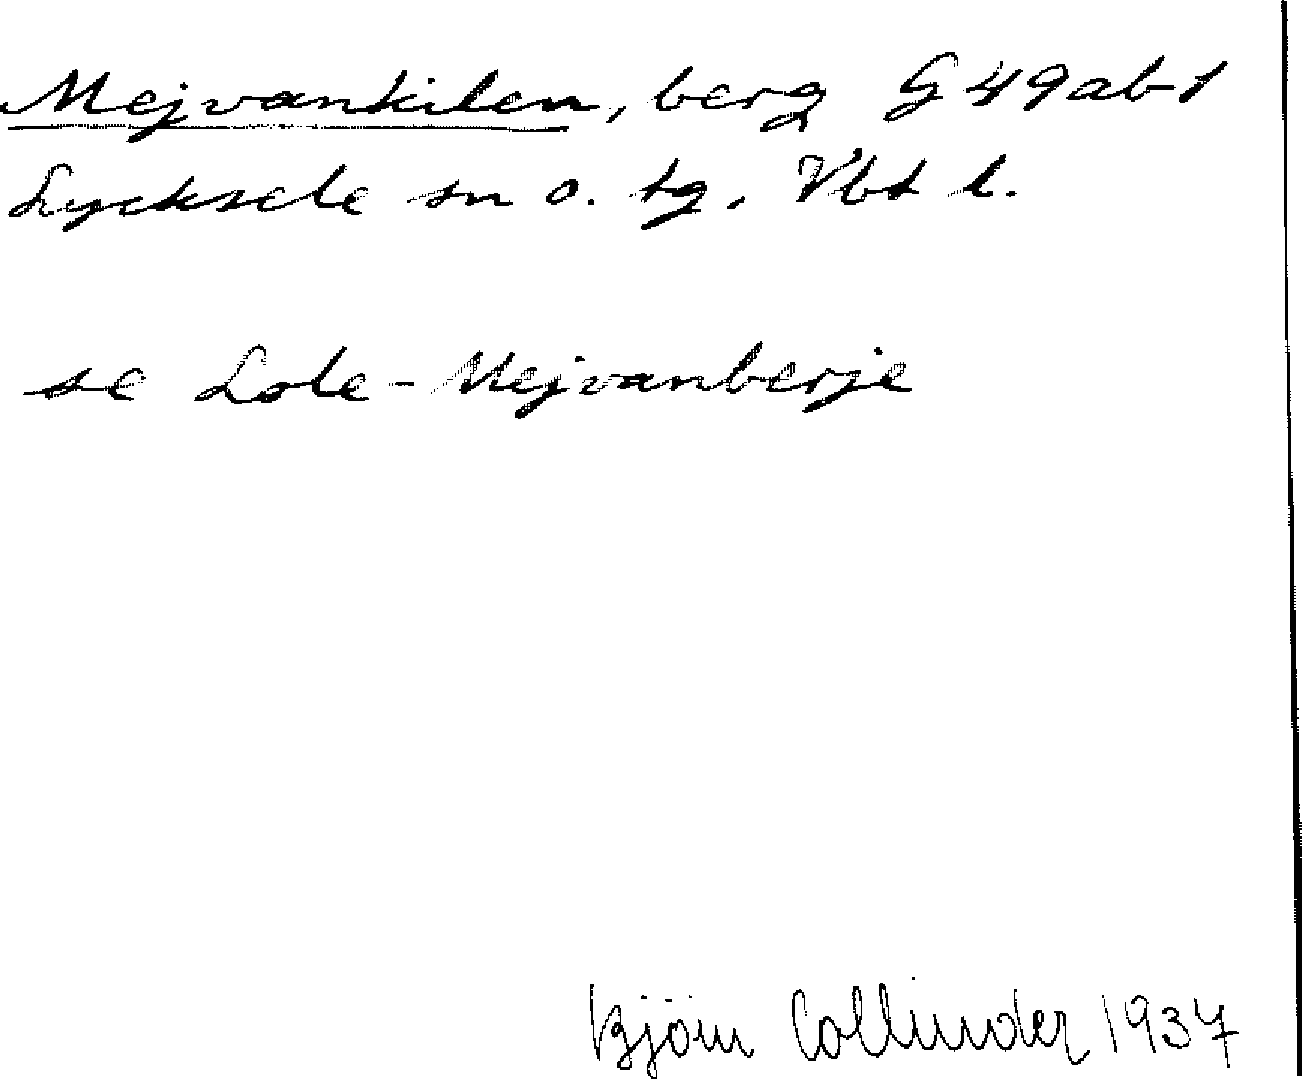 Mejvankilen, berg G 49ab1
Lycksele sn o. tg. Vbt l.
se Lole-Mejvanberje
Björn Collinder 1937